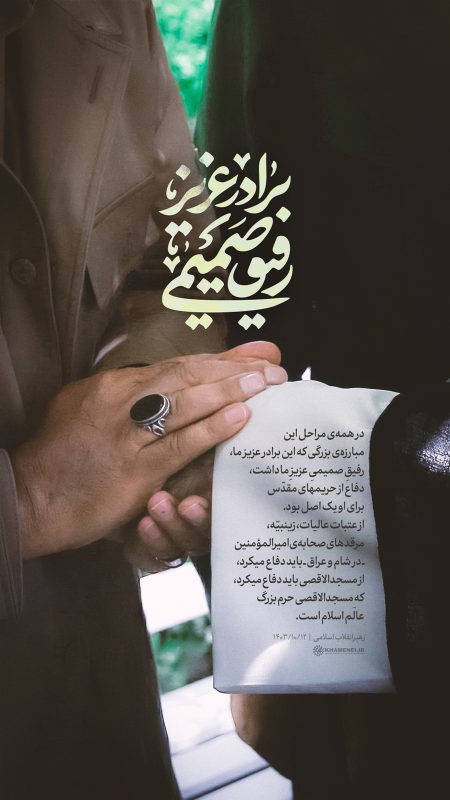 برادر عزیز
رفیق صمیمی
در همه‌ی مراحل این
مبارزه‌ی بزرگی که این برادر عزیز ما،
رفیق صمیمی عزیز ما داشت،
دفاع از حریمهای مقدّس
برای او یک اصل بود.
از عتبات عالیات، زینبیّه،
مرقدهای صحابه‌ی امیرالمؤمنین
ـ در شام و عراق ـ باید دفاع میکرد،
از مسجدالاقصی باید دفاع میکرد،
که مسجدالاقصی حرم بزرگ
عالَم اسلام است.
رهبر انقلاب اسلامی | ۱۴۰۳/۱۰/۱۲
KHAMENEI.IR